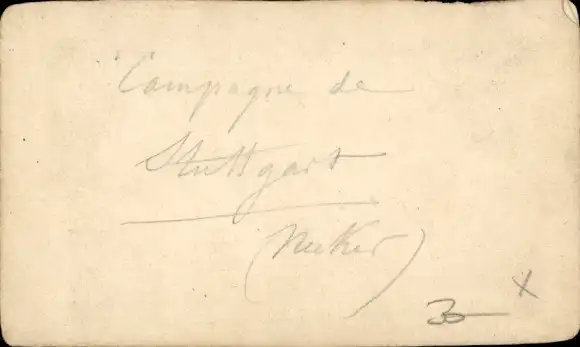 Campagne de
Stuttgart
(Necker)
3
x